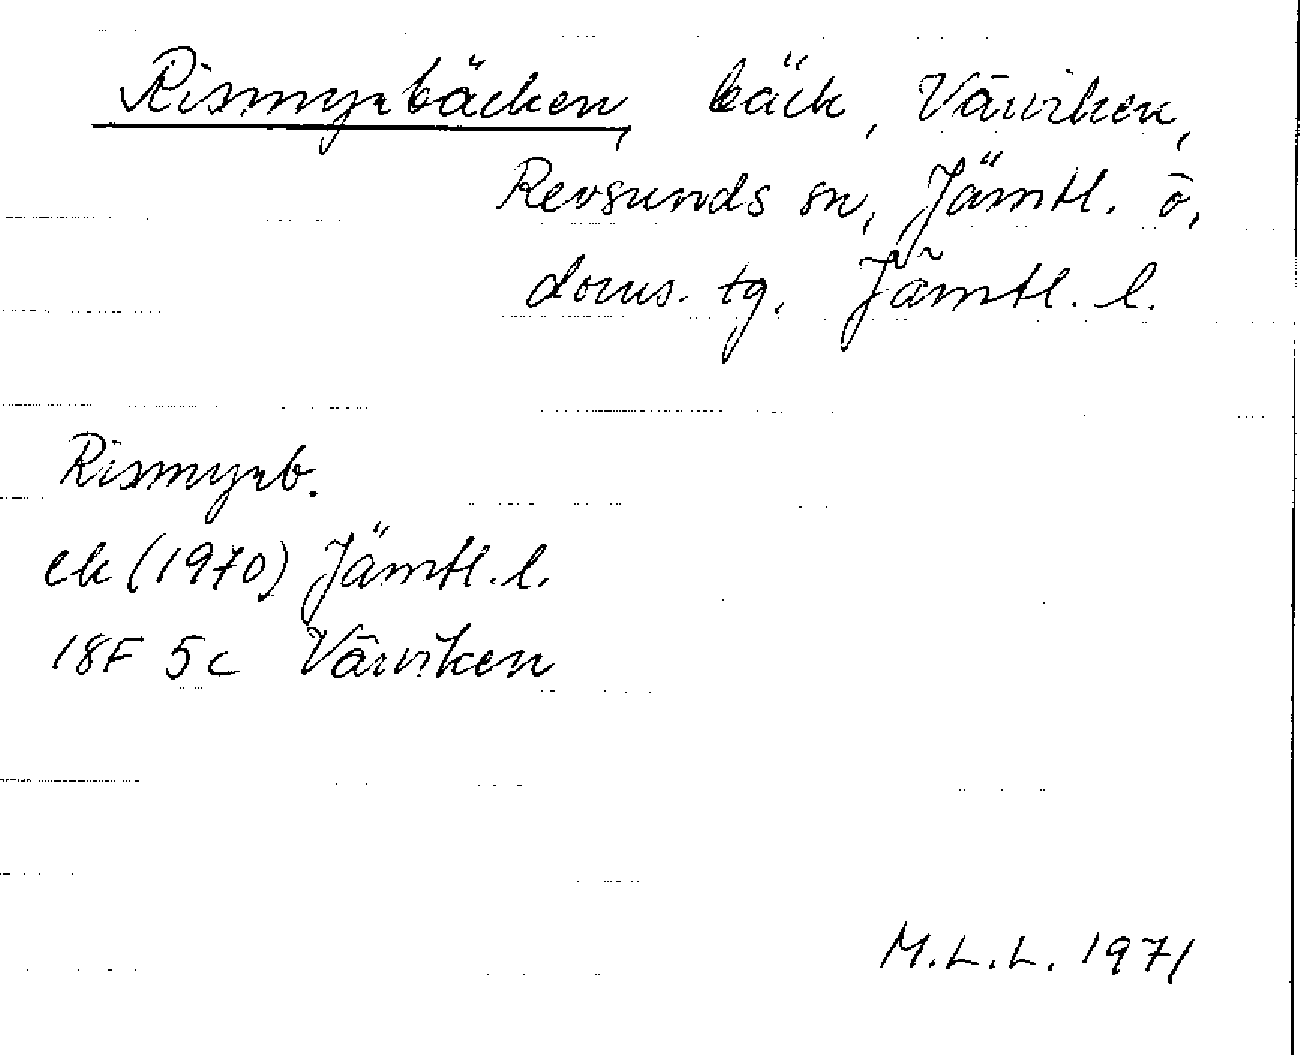 Rismyrbäcken, bäck, Värviken,
Revsunds sn, Jämtl. ö.
doms. tg. Jämtl. l.
Rismyrb.
ek (1970) Jämtl. l.
18F 5c Värviken
M.L.L. 1971